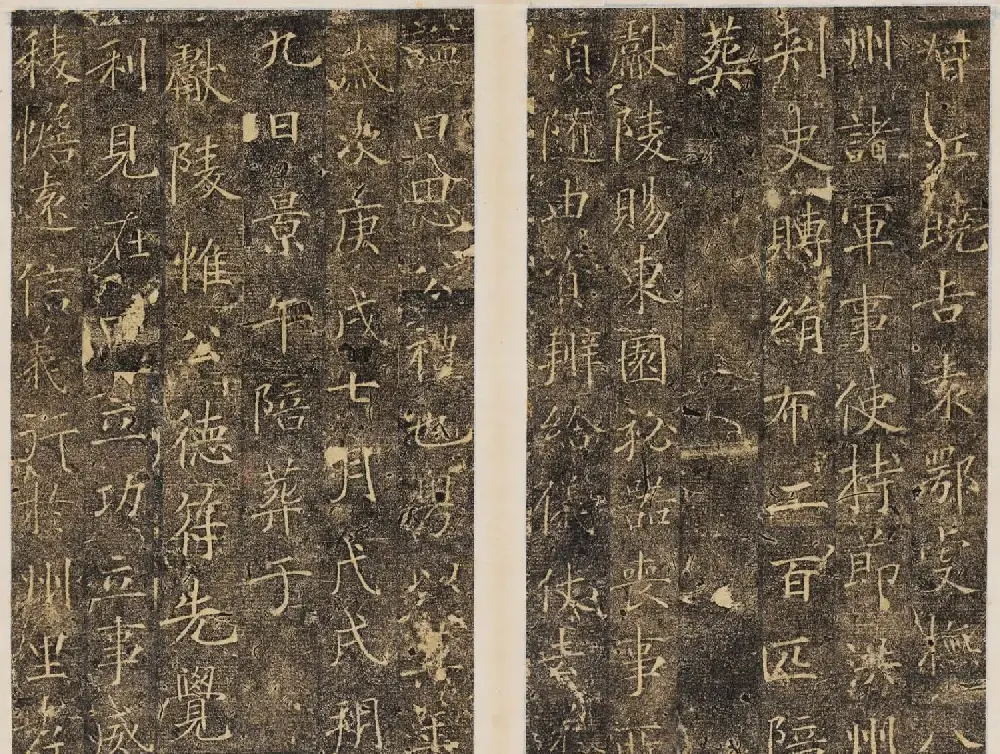 督江饒吉袁鄂虔撫八
州諸軍事使持節洪州
刺史賻絹布二百匹陪
葬
獻陵賜東園秘器喪事所
須隨由資辦給儀仗去
謚曰思公禮也粵以其年
歲次庚戌七月戊戌朔
九日景午陪葬于
獻陵惟公德符先覺
利見在立功立事威
稜憺遠信義行於州里